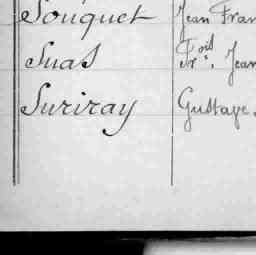 Souquet Jean Fran
Suas Frois, Jean
Suriray Gustave